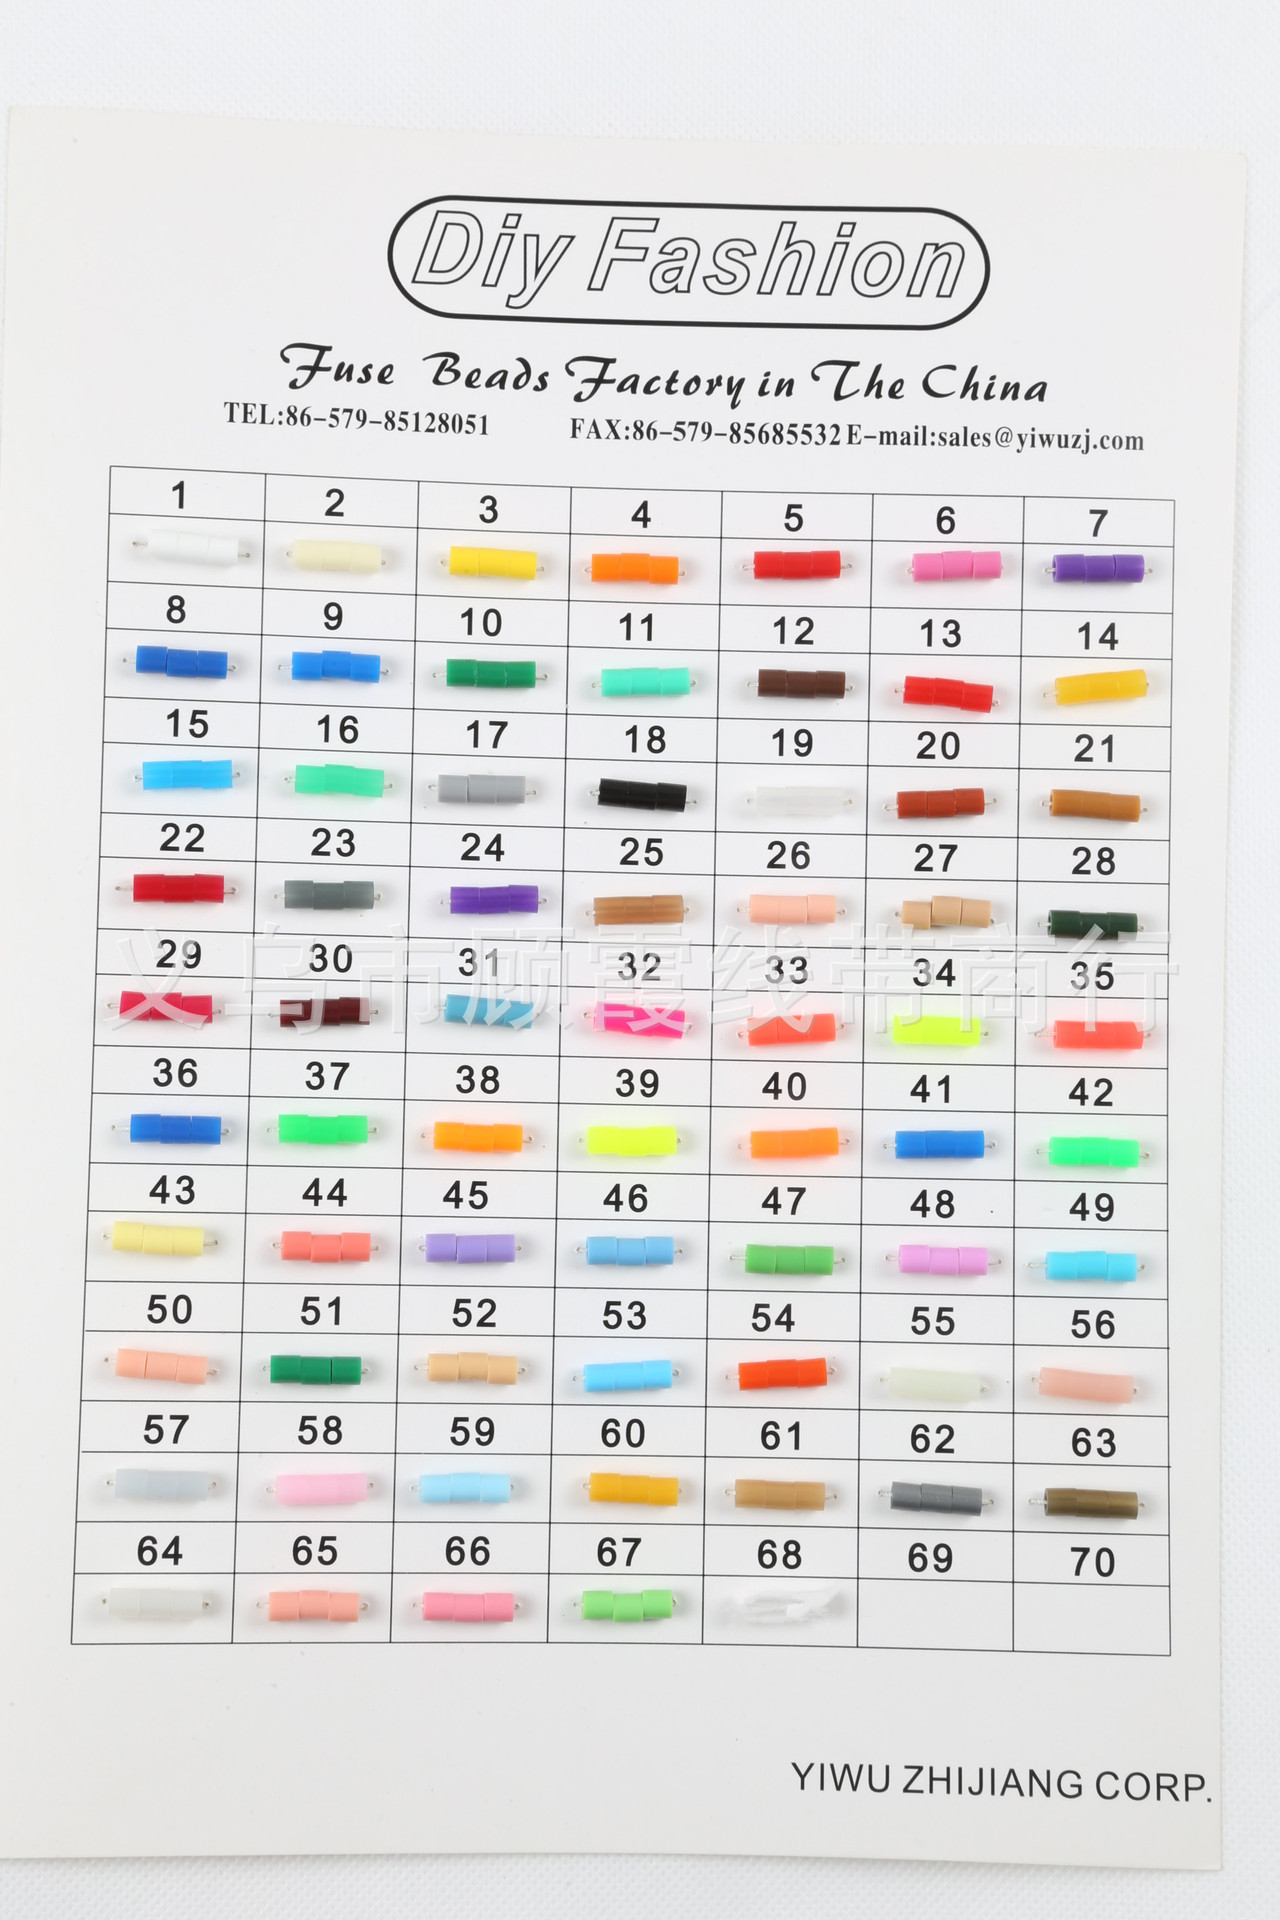 Diy Fashion
Fuse Beads Factory in The China
TEL:86-579-85128051 FAX:86-579-85685532 E-mail:sales@yiwuzj.com
1 2 3 4 5 6 7
8 9 10 11 12 13 14
15 16 17 18 19 20 21
22 23 24 25 26 27 28
义乌市顾霞线带商行
29 30 31 32 33 34 35
36 37 38 39 40 41 42
43 44 45 46 47 48 49
50 51 52 53 54 55 56
57 58 59 60 61 62 63
64 65 66 67 68 69 70
YIWU ZHIJIANG CORP.